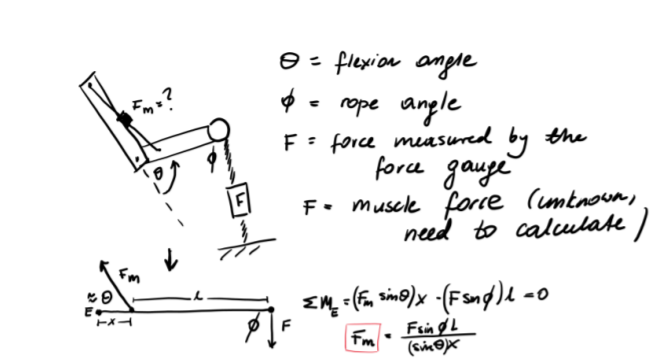 θ = flexion angle
Fm = ?
ϕ = rope angle
F = force measured by the
force gauge
θ
ϕ
F
F = muscle force (unknown,
need to calculate)
Fm
≈ θ
l
E
x
ϕ
F
ΣM_E = (Fm sinθ)x - (F sinϕ) l = 0
Fm = F sinϕ L / (sinθ)x